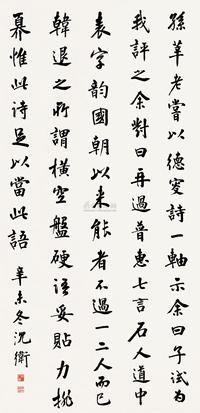 孫莘老嘗以德叟詩一軸示余曰子試為
我評之余對曰再過普惠七言石人道中
表字韵國朝以來能者不過一二人而已
韓退之所謂橫空盤硬語妥貼力排
奡惟此詩足以當此語
辛未冬沈衛